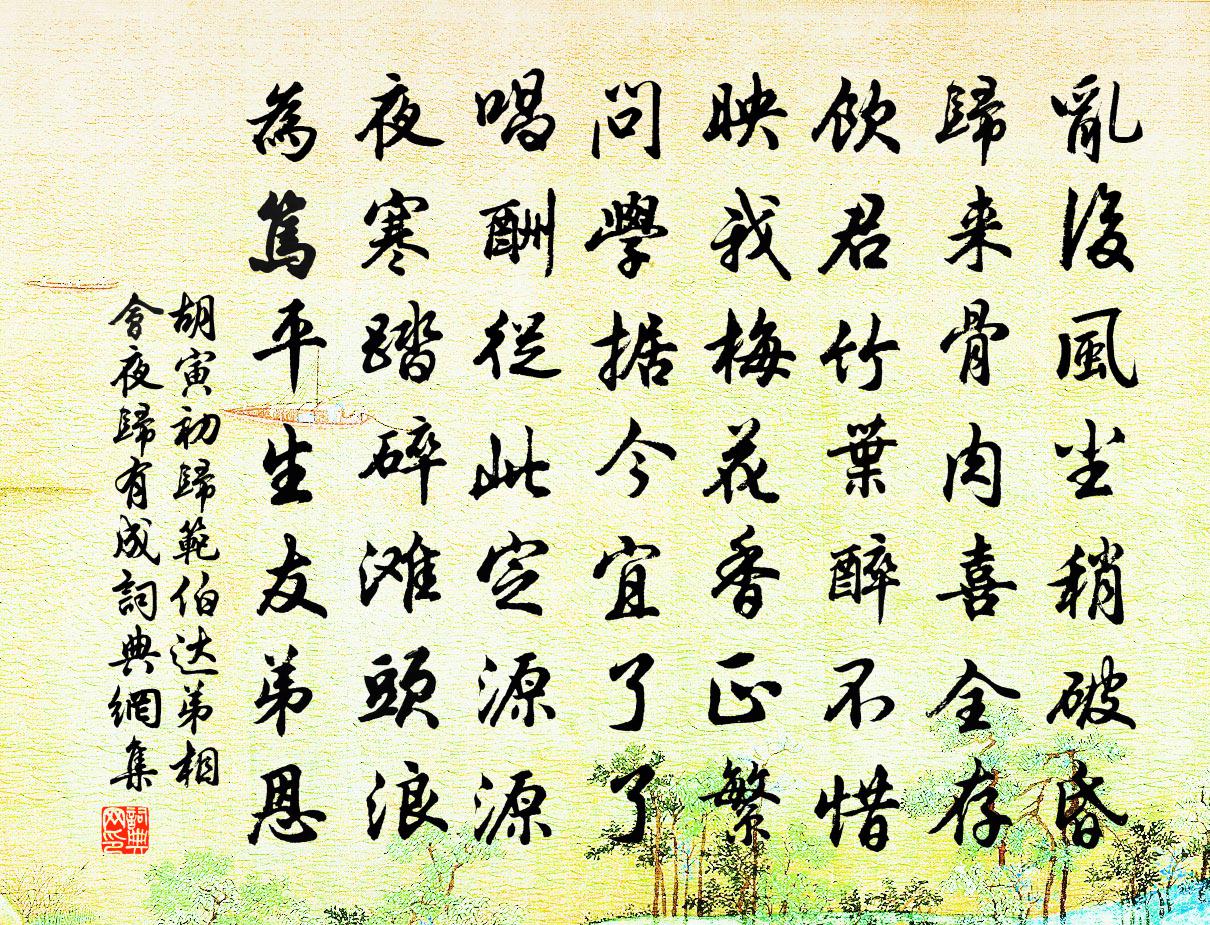 亂後風塵稍破昏
歸来骨肉喜全存
飲君竹葉醉不惜
映我梅花香正繁
問學據今宜了了
唱酬從此定源源
夜寒踏碎滩頭浪
為篤平生友弟恩
胡寅初歸範伯达弟相
會夜歸有成詞典網集
詞典网印